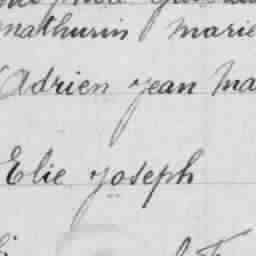 mathurin marie
Adrien jean Ma
Elie joseph